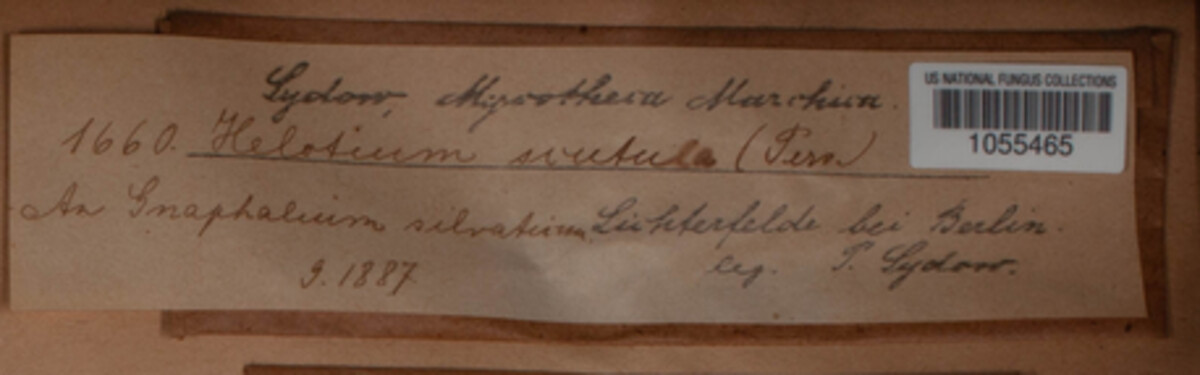 Sydow, Mycotheca Marchica.
US NATIONAL FUNGUS COLLECTIONS
1055465
1660. Helotium scutula (Pers.)
An Gnaphalium silvaticum Lichterfelde bei Berlin.
9. 1887 leg. P. Sydow.